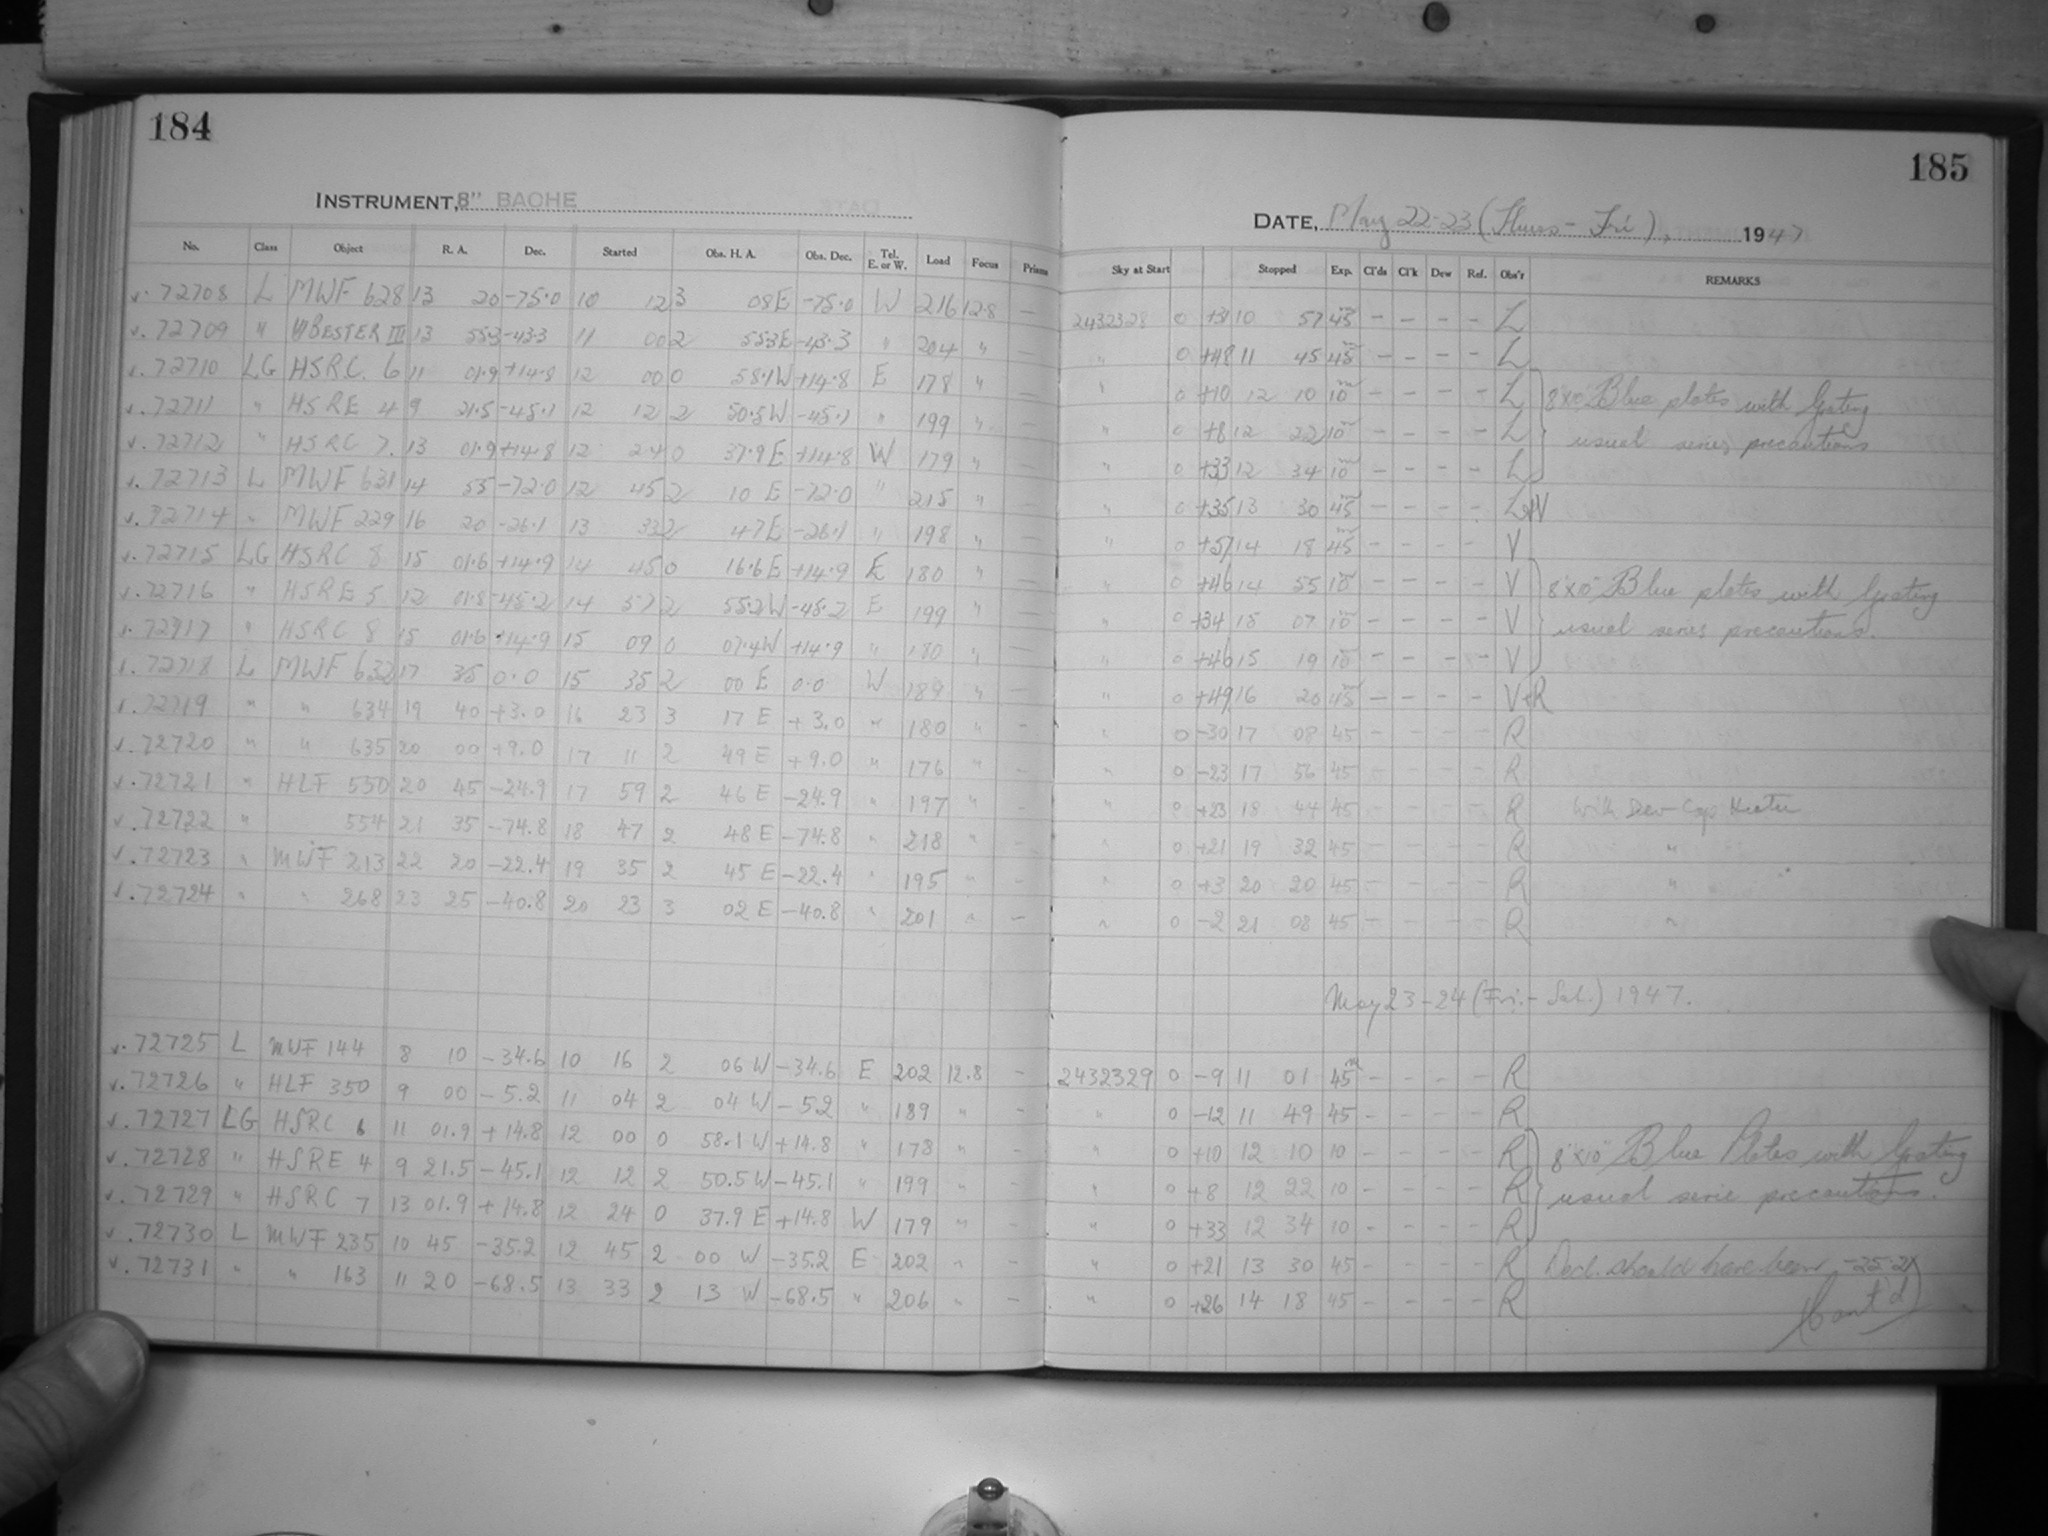 184
INSTRUMENT, 8" BACHE
No. Class Object R. A. Dec. Started Obs. H. A. Obs. Dec. Tel. E. or W. Load Focus Prisms
v. 72708 L MWF 628 13 20 -75.0 10 12 3 08 E -75.0 W 216 12.8 —
v. 72709 " BESTER III 13 553 -43.3 11 00 2 553 E -43.3 " 204 " —
v. 72710 LG HSRC. 6 11 01.9 +14.8 12 00 0 58.1 W +14.8 E 178 " —
v. 72711 " HSRE 4 9 21.5 -45.1 12 12 2 50.5 W -45.1 " 199 " —
v. 72712 " HSRC 7. 13 01.9 +14.8 12 24 0 37.9 E +14.8 W 179 " —
v. 72713 L MWF 631 14 55 -72.0 12 45 2 10 E -72.0 " 215 " —
v. 72714 " MWF 229 16 20 -26.1 13 33 2 47 E -26.1 " 198 " —
v. 72715 LG HSRC 8 15 01.6 +14.9 14 45 0 16.6 E +14.9 E 180 " —
v. 72716 " HSRE 5 12 01.8 -45.2 14 57 2 55.2 W -45.2 E 199 " —
v. 72717 " HSRC 8 15 01.6 +14.9 15 09 0 07.4 W +14.9 " 180 " —
v. 72718 L MWF 632 17 35 0.0 15 35 2 00 E 0.0 W 189 " —
v. 72719 " " 634 19 40 +3.0 16 23 3 17 E +3.0 " 180 " —
v. 72720 " " 635 20 00 +9.0 17 11 2 49 E +9.0 " 176 " —
v. 72721 " HLF 550 20 45 -24.9 17 59 2 46 E -24.9 " 197 " —
v. 72722 " 554 21 35 -74.8 18 47 2 48 E -74.8 " 218 " —
v. 72723 " MWF 213 22 20 -22.4 19 35 2 45 E -22.4 " 195 " —
v. 72724 " " 268 23 25 -40.8 20 23 3 02 E -40.8 " 201 " —
v. 72725 L MWF 144 8 10 -34.6 10 16 2 06 W -34.6 E 202 12.8 —
v. 72726 " HLF 350 9 00 -5.2 11 04 2 04 W -5.2 " 189 " —
v. 72727 LG HSRC 6 11 01.9 +14.8 12 00 0 58.1 W +14.8 " 178 " —
v. 72728 " HSRE 4 9 21.5 -45.1 12 12 2 50.5 W -45.1 " 199 " —
v. 72729 " HSRC 7 13 01.9 +14.8 12 24 0 37.9 E +14.8 W 179 " —
v. 72730 L MWF 235 10 45 -35.2 12 45 2 00 W -35.2 E 202 " —
v. 72731 " " 163 11 20 -68.5 13 33 2 13 W -68.5 " 206 " —
185
DATE, May 22-23 (Thurs - Fri), 1947
Sky at Start Stopped Exp. Cl'ds Cl'k Dew Ref. Obs'r REMARKS
2432328 0 +31 10 57 45m – – – – L
" 0 +48 11 45 45m – – – – L
" 0 +10 12 10 10m – – – – L 8"x10" Blue plates with Grating
" 0 +8 12 22 10m – – – – L usual series precautions
" 0 +33 12 34 10m – – – – L
" 0 +35 13 30 45m – – – – L+V
" 0 +57 14 18 45m – – – – V
" 0 +46 14 55 10m – – – – V 8"x10" Blue plates with Grating
" 0 +34 15 07 10m – – – – V usual series precautions.
" 0 +46 15 19 10m – – – – V
" 0 +49 16 20 45m – – – – V+R
" 0 -30 17 08 45 – – – – R
" 0 -23 17 56 45 – – – – R
" 0 +23 18 44 45 – – – – R With Dew-Cap Heater
" 0 +21 19 32 45 – – – – R "
" 0 +3 20 20 45 – – – – R "
" 0 -2 21 08 45 – – – – R "
May 23-24 (Fri. - Sat.) 1947.
2432329 0 -9 11 01 45m – – – – R
" 0 -12 11 49 45 – – – – R
" 0 +10 12 10 10 – – – – R 8"x10" Blue Plates with Grating
" 0 +8 12 22 10 – – – – R usual serie precautions.
" 0 +33 12 34 10 – – – – R
" 0 +21 13 30 45 – – – – R Decl. should have been -25.2
" 0 +26 14 18 45 – – – – R (Cont'd)